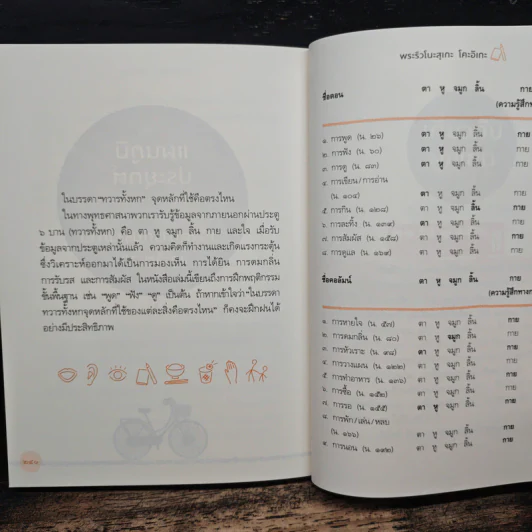 ในบรรดา "ทวารทั้งหก" จุดหลักที่ใช้คือตรงไหน
ในทางพุทธศาสนาพวกเรารับรู้ข้อมูลจากภายนอกผ่านประตู
๖ บาน (ทวารทั้งหก) คือ ตา หู จมูก ลิ้น กาย และใจ เมื่อรับ
ข้อมูลจากประตูเหล่านั้นแล้ว ความคิดก็ทำงานและเกิดแรงกระตุ้น
ซึ่งวิเคราะห์ออกมาได้เป็นการมองเห็น การได้ยิน การดมกลิ่น
การรับรส และการสัมผัส ในหนังสือเล่มนี้เขียนถึงการฝึกพฤติกรรม
ขั้นพื้นฐาน เช่น "พูด" "ฟัง" "ดู" เป็นต้น ถ้าหากเข้าใจว่า "ในบรรดา
ทวารทั้งหกจุดหลักที่ใช้ของแต่ละสิ่งคือตรงไหน" ก็คงจะฝึกฝนได้
อย่างมีประสิทธิภาพ
พระริวโนะสุเกะ โคะอิเกะ
ชื่อตอน ตา หู จมูก ลิ้น กาย
(ความรู้สึก
๑. การพูด (น. ๒๖) ตา หู จมูก ลิ้น กาย
๒. การฟัง (น. ๖๐) ตา หู จมูก ลิ้น กาย
๓. การดู (น. ๘๓) ตา หู จมูก ลิ้น กาย
๔. การเขียน/การอ่าน
(น. ๑๐๔) ตา หู จมูก ลิ้น กาย
๕. การกิน (น. ๑๒๘) ตา หู จมูก ลิ้น กาย
๖. การละทิ้ง (น. ๑๓๙) ตา หู จมูก ลิ้น กาย
๗. การสัมผัส (น. ๑๕๘) ตา หู จมูก ลิ้น กาย
๘. การดูแล (น. ๑๖๙) ตา หู จมูก ลิ้น กาย
ชื่อคอลัมน์ ตา หู จมูก ลิ้น กาย
(ความรู้สึกทาง
๑. การหายใจ (น. ๕๗) ตา หู จมูก ลิ้น กาย
๒. การดมกลิ่น (น. ๘๐) ตา หู จมูก ลิ้น กาย
๓. การหัวเราะ (น. ๙๘) ตา หู จมูก ลิ้น กาย
๔. การวางแผน (น. ๑๒๒) ตา หู จมูก ลิ้น กาย
๕. การทำอาหาร (น. ๑๓๖) ตา หู จมูก ลิ้น กาย
๖. การซื้อ (น. ๑๕๒) ตา หู จมูก ลิ้น กาย
๗. การรอ (น. ๑๕๕) ตา หู จมูก ลิ้น กาย
๘. การพัก/เล่น/หลบ
(น. ๑๖๖) ตา หู จมูก ลิ้น กาย
๙. การนอน (น. ๑๙๒) ตา หู จมูก ลิ้น กาย